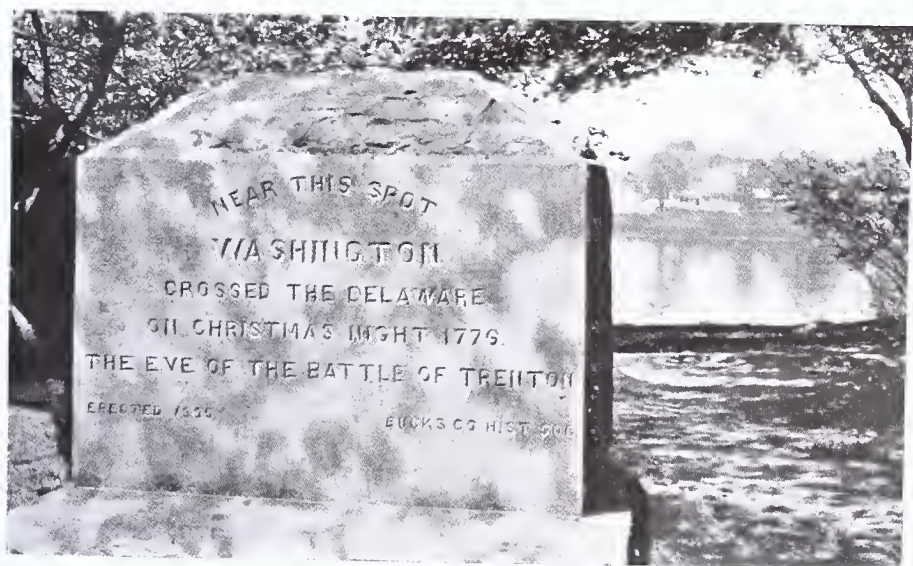 NEAR THIS SPOT
WASHINGTON
CROSSED THE DELAWARE
ON CHRISTMAS NIGHT 1776.
THE EVE OF THE BATTLE OF TRENTON
ERECTED
BUCKS CO HIST. SOC.